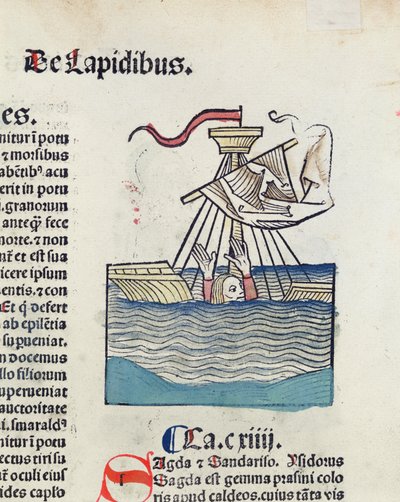 De Lapidibus.
es.
nitur ī potu
⁊ morsibus
abētibꝰ acu
erit in potu
.i. granorum
ante qͥ fece
morte. ⁊ non
nr̄ et est sua
icere ipsum
entis. ⁊ con
Et qͥ defert
ab epilētia
supueniat.
n docemus
llo filiorum
uperueniat
auctoritate
.i. smaraldꝰ
nitur ī potu
ectus tiri su
ur̄ oculi eius
ides capso
⸿ Ca. cxiiij.
SAgda ⁊ Sandariso. Ysidorus
Sagda est gemma prasini colo
ris apud caldeos. cuius tāta vis